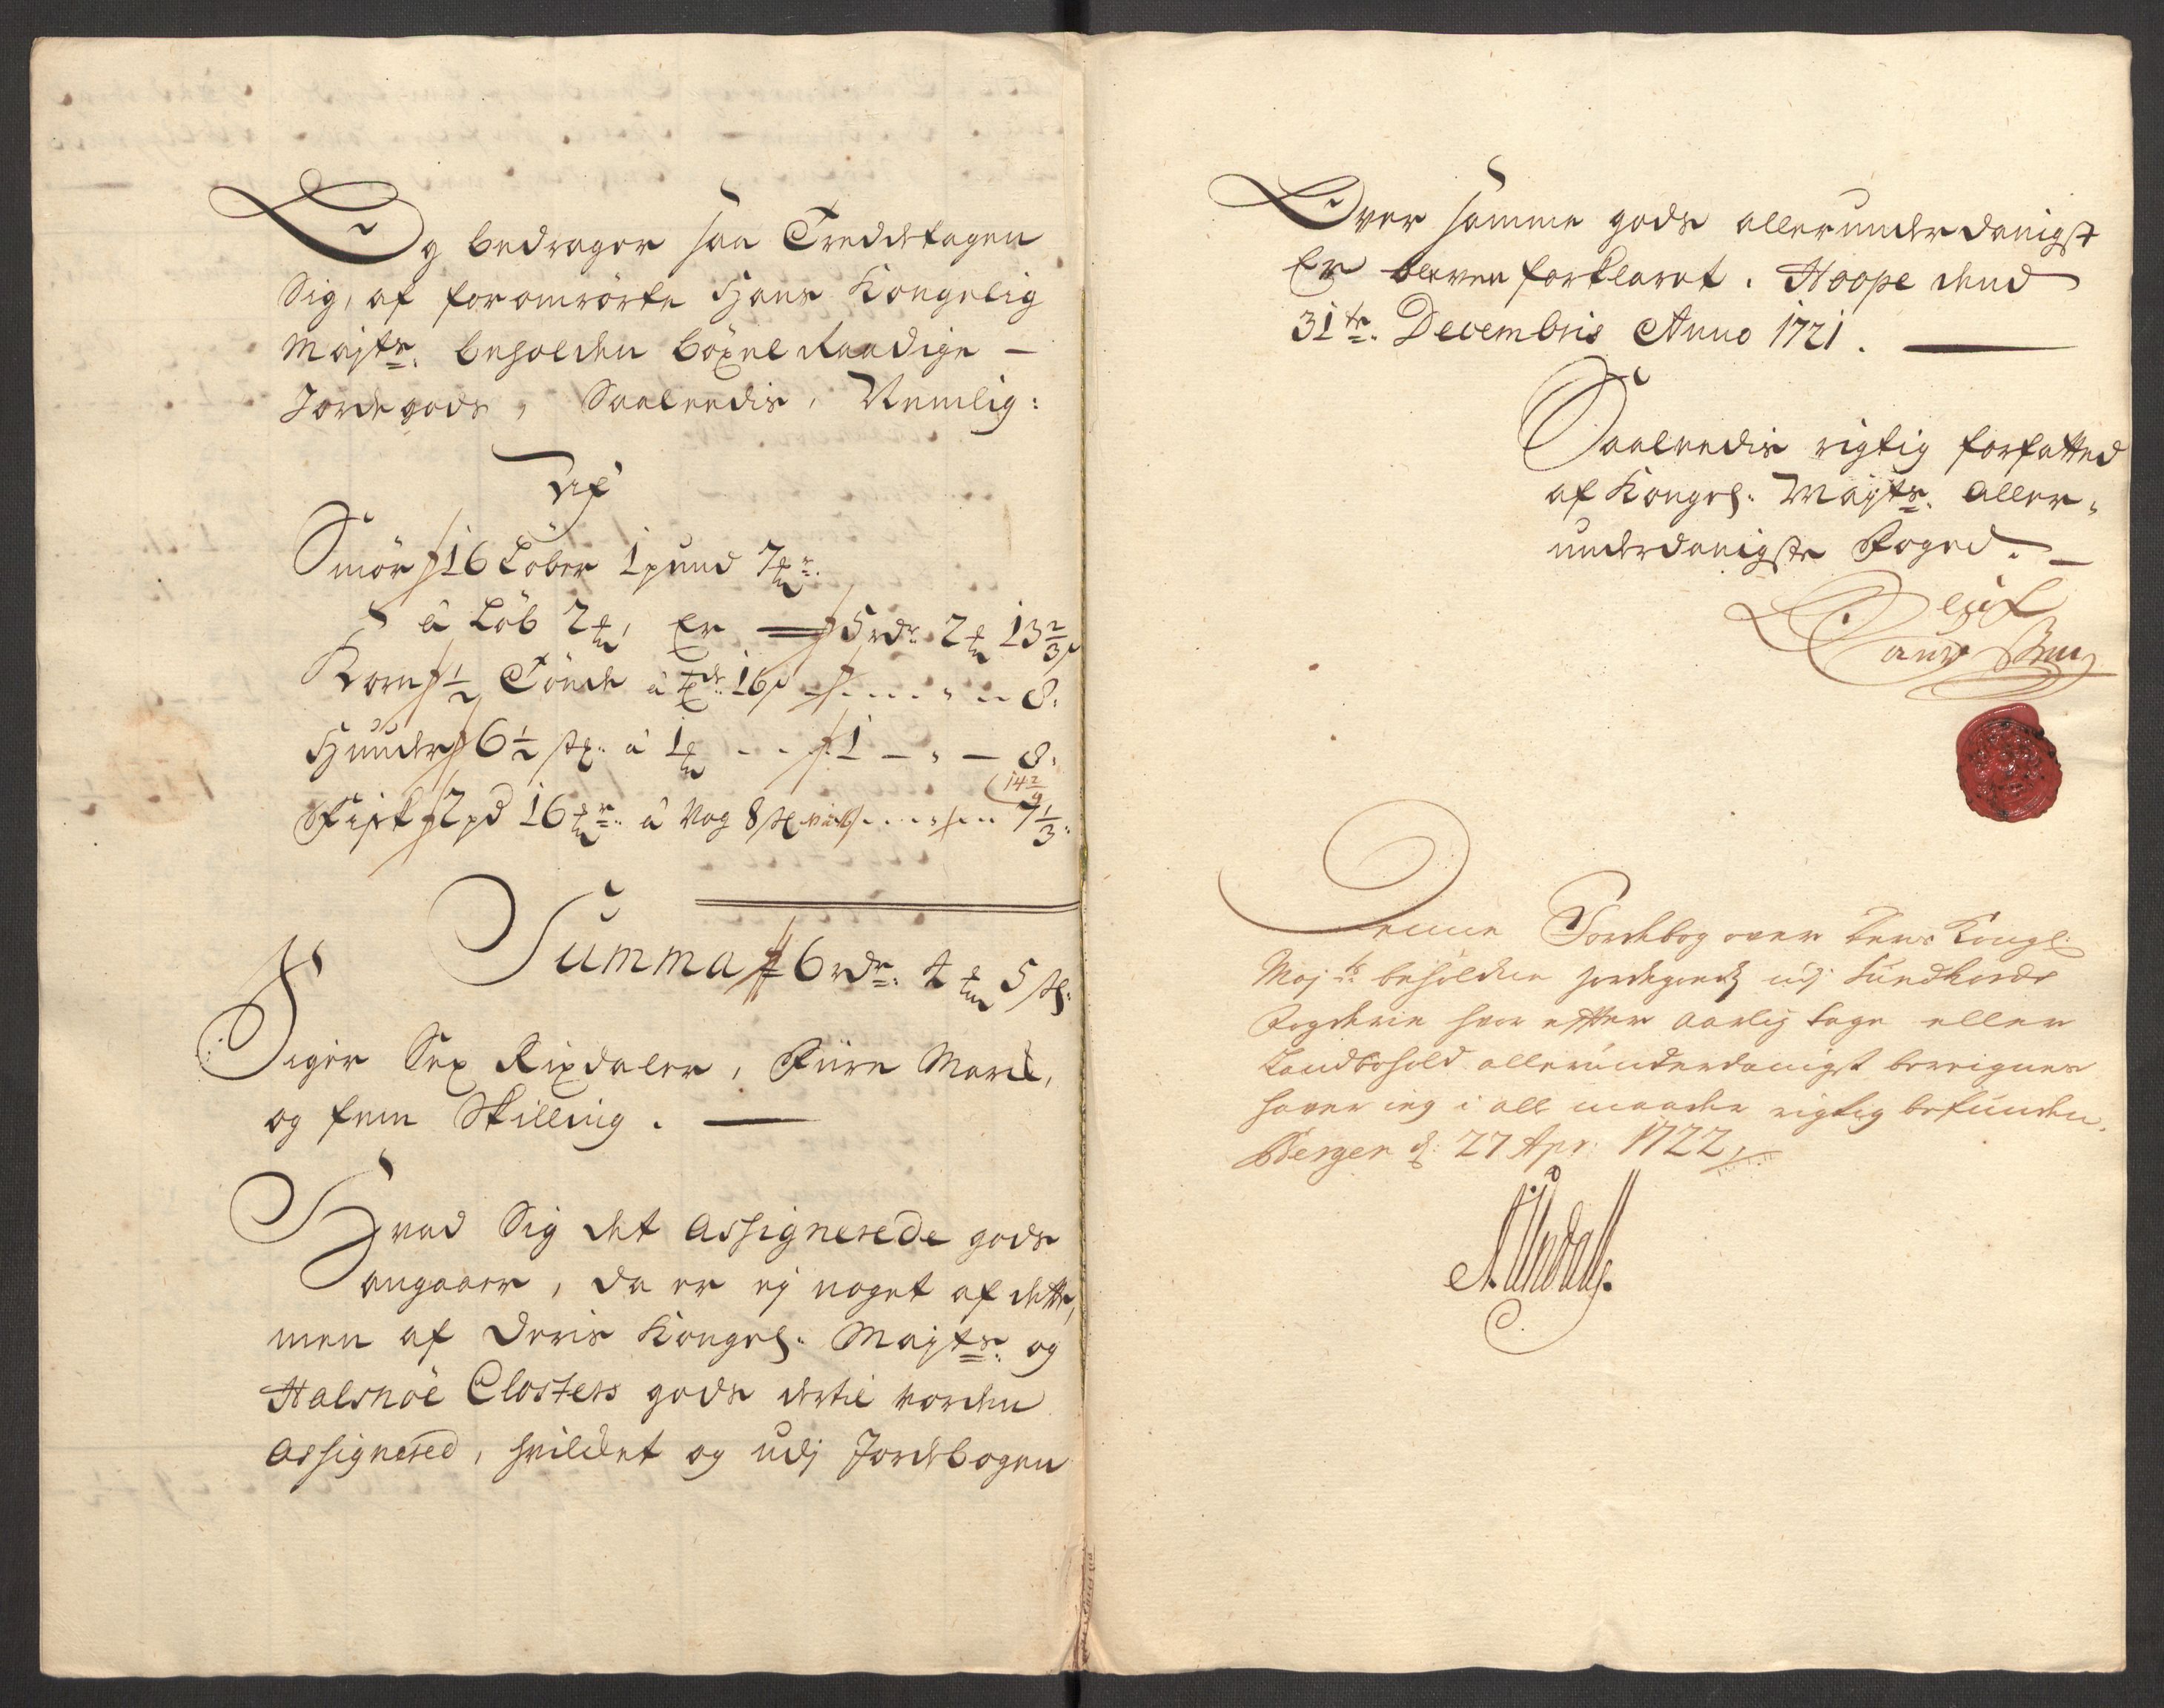 Og bedrager saa Treddetagen
Sig, af foromrörte Hans Kongelig
Mayts: beholden böxel Raadige –
Jordegods, Saaleedis, Nemlig:
Smör 16 Löber 1 pund 7
â Löb 2 Er — 5 rdr 2 13 2/3
Korn 1/2 Tönde â 16 8.
Huuder 6 1/2 â 1 1 – „ – 8.
14 2/9
Fisk 2 pd 16 â Vog 8 7 1/3:
Summa 6 rdr: 4 5
Siger Sex Rixdaler, Fiire Marck,
og fem Skilling.
Hvad Sig det assignerede gods
angaaer, da er ej noget af dette,
men af Deris Kongel: Mayts: og
Halsnöe Closters gods dertil vorden
assignered, hvilcket og udj Jordebogen
Over samme gods allerunderdanigst
Er bleven forklaret. Hoope dend
31te: Decembris Anno 1721.
Saaleedis rigtig forfatted
af Kongel: Mayts: aller-
underdanigste Foged.
Denne Jordebog over Kongl:
Majts: beholdne jordegoeds udj Sundhords
Fogderie hvor effter aarlig tage eller
Landbohold allerunderdanigst beregnes
haver ieg i all maader rigtig befunden.
Bergen d: 27 Apr: 1722